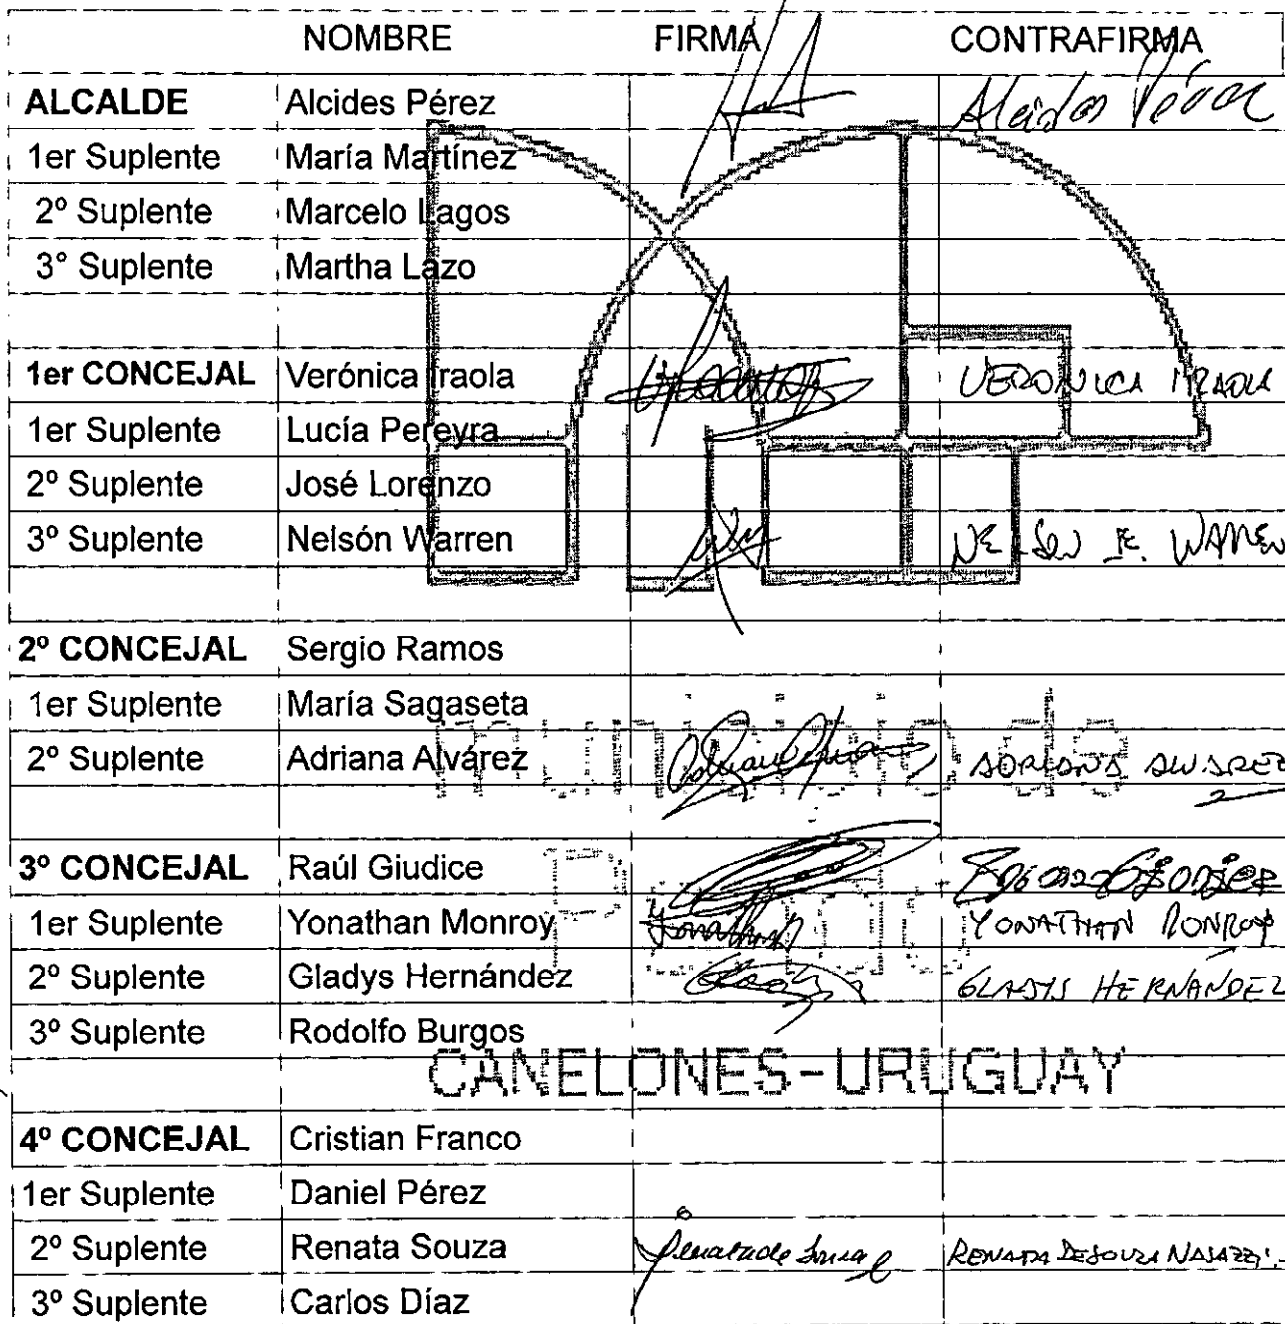 NOMBRE FIRMA CONTRAFIRMA
ALCALDE Alcides Pérez Alcides Pérez
1er Suplente María Martínez
2º Suplente Marcelo Lagos
3° Suplente Martha Lazo
1er CONCEJAL Verónica Iraola VERONICA IRAOLA
1er Suplente Lucía Pereyra
2º Suplente José Lorenzo
3º Suplente Nelsón Warren NELSON E. WARREN
2º CONCEJAL Sergio Ramos
1er Suplente María Sagaseta
municipio de
2º Suplente Adriana Alvárez ADRIANA ALVAREZ
3º CONCEJAL Raúl Giudice
1er Suplente Yonathan Monroy Yonathan YONATHAN MONROY
2º Suplente Gladys Hernández GLADYS HERNANDEZ
3º Suplente Rodolfo Burgos
CANELONES-URUGUAY
4º CONCEJAL Cristian Franco
1er Suplente Daniel Pérez
2º Suplente Renata Souza Renata de Souza RENATA DE SOUZA NASAZZI.-
3º Suplente Carlos Díaz